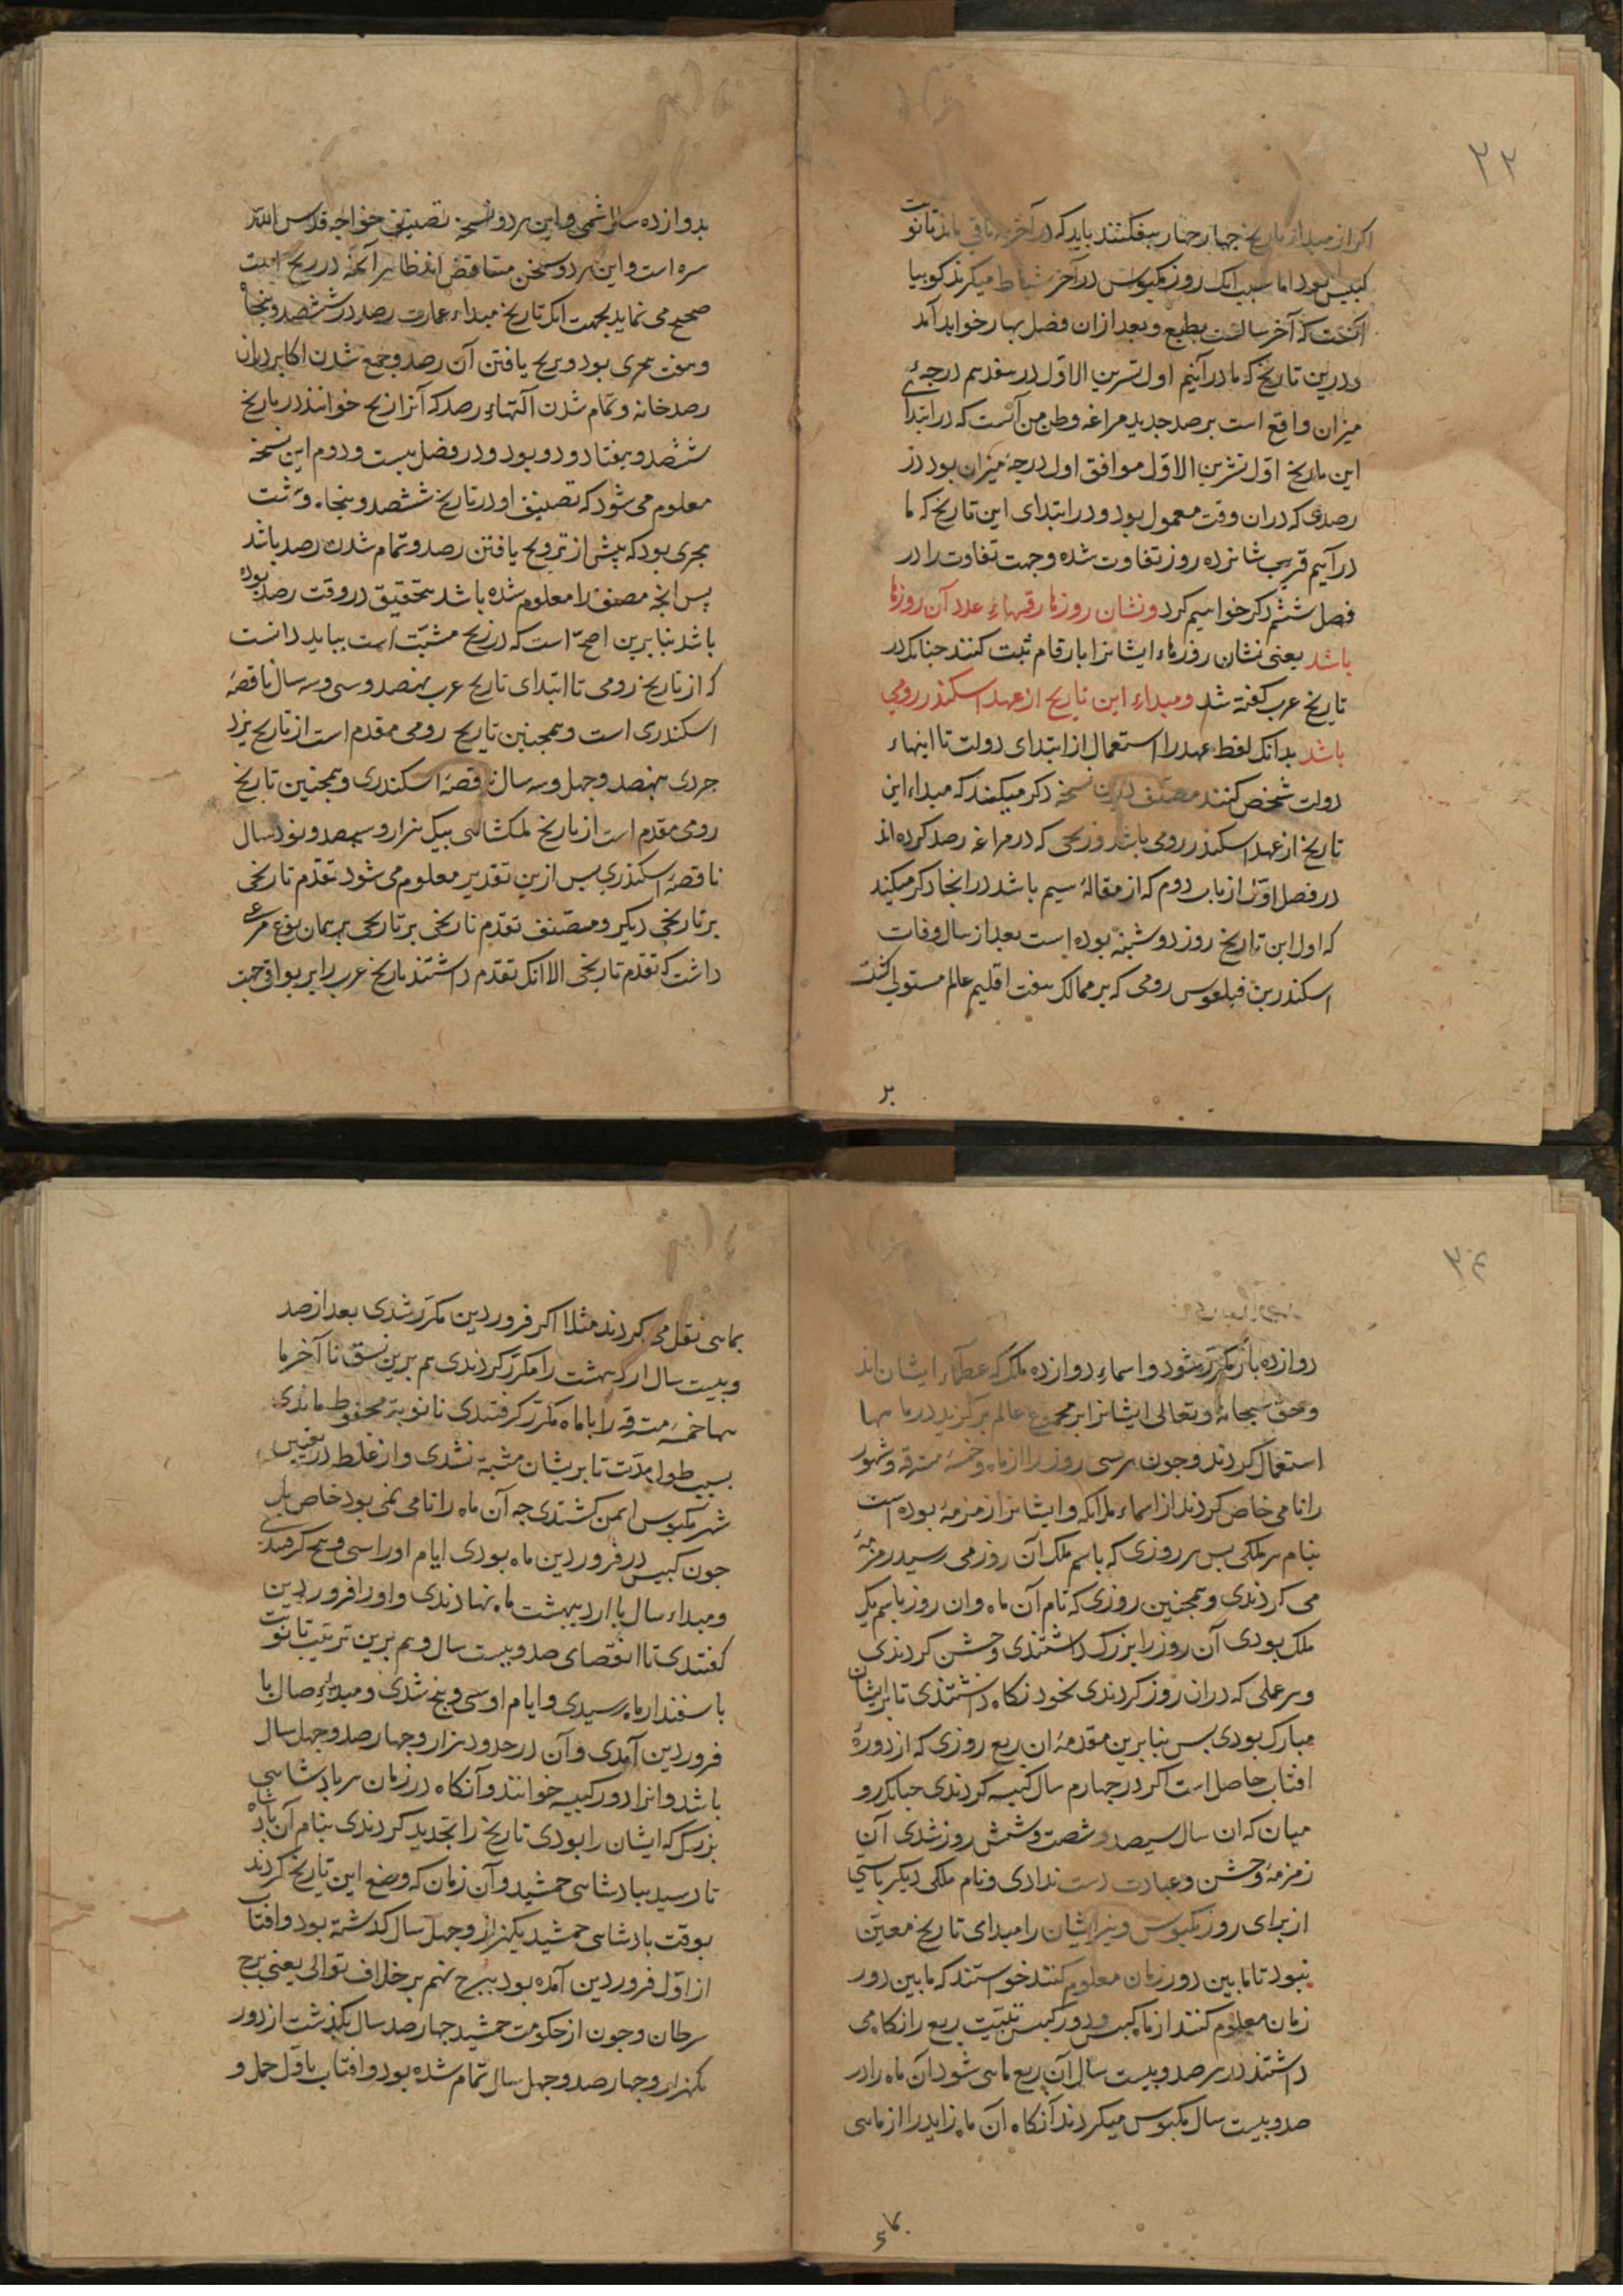 ۲۲
اکر از مبداء تاریخ جهار جهار بیفکنند باید که در آخر باقی ماند تا نوبت
کبیس بود اما سبب انک روز مکبوس در آخر شباط میکرند کوییا
آنست که آخر سالست بطبع و بعد ازان فصل بهار خواهد آمد
و درین تاریخ که ما در آنیم اول تشرین الاول در هفدهم درجهٔ
میزان واقع است برصد جدید مراغه و ظن من آنست که در ابتداء
این تاریخ اول تشرین الاول موافق اول درجهٔ میزان بود در
رصدی که دران وقت معمول بود و در ابتدای این تاریخ که ما
در آنیم قریب شانزده روز تفاوت شده و جهت تفاوت را در
فصل ششم ذکر خواهیم کرد ونشان روزها رقمهاء عدد آن روزها
باشد یعنی نشان روزهاء ایشانرا بارقام ثبت کنند جنانک در
تاریخ عرب کفته شد ومبداء این تاریخ از عهد اسکندر رومی
باشد بدانک لفظ عهد را استعمال از ابتدای دولت تا انتهاء
دولت شخص کنند مصنف درین نسخه ذکر میکند که مبداء این
تاریخ از عهد اسکندر رومی باشد و زیجی که در مراغه رصد کرده اند
در فصل اول از باب دوم که از مقالهٔ سیم باشد در انجا ذکر میکند
که اول این تاریخ روز دوشنبه بوده است بعد از سال وفات
اسکندر بن فیلقوس رومی که بر ممالک هفت اقلیم عالم مستولی کشت
بر
بدوازده سال شمسی و این هر دو نسخه تصنیف خواجه قدس الله
سره است و این هر دو سخن متناقض اند ظاهر آنچه در زیج است
صحیح می نماید بجهت انک تاریخ مبداء عمارت رصد در ششصد و پنجاه
و هفت هجری بود و ترویج یافتن آن رصد و جمع شدن اکابر دران
رصدخانه و تمام شدن آلتهاء رصد که آنرا زیج خوانند در تاریخ
ششصد و هفتاد و دو بود و در فصل بیست و دوم این نسخه
معلوم می شود که تصنیف او در تاریخ ششصد و پنجاه و شت
هجری بود که پیش از ترویج یافتن رصد و تمام شدن رصد باشد
پس انچه مصنف را معلوم شده باشد بتحقیق در وقت رصد بوده
باشد بنا برین اصح است که در زیج مثبت است بباید دانست
که از تاریخ رومی تا ابتدای تاریخ عرب نهصد و سی و سه سال ناقصهٔ
اسکندری است و همجنین تاریخ رومی مقدم است از تاریخ یزد
جردی نهصد و جهل و سه سال ناقصهٔ اسکندری و همجنین تاریخ
رومی مقدم است از تاریخ ملکشاهی بیک هزار و سیصد و نود سال
ناقصهٔ اسکندری پس ازین تقدیر معلوم می شود تقدم تاریخی
بر تاریخی دیکر و مصنف تقدم تاریخی بر تاریخی بر همان نوع مرعی
داشت که تقدم تاریخی الا انک تقدم داشتند تاریخ عرب را بر بواقی جهت
۲۴
دوازده بار مکرر شود و اسماء دوازده ملک که عظماء ایشان اند
و حق سبحانه و تعالی ایشانرا بر مجموع عالم برکزید در ماهها
استعمال کردند و جون هر سی روز را از ماه و خمسهٔ مسترقه و شهور
را نامی خاص کردند از اسماء ملائکه و ایشانرا زمزمهٔ بوده است
بنام هر ملکی پس هر روزی که باسم ملک آن روز می رسید زمزمه
می کردندی و همجنین روزی که نام آن ماه و ان روز باسم یک
ملک بودی آن روز را بزرک داشتندی و جشن کردندی
و هر عملی که دران روز کردندی بخود نکاه داشتندی تا بر ایشان
مبارک بودی پس بنا برین مقدمه ان ربع روزی که از دورهٔ
افتاب حاصل است اکر در جهارم سال کبیسه کردندی جنانک رو
میان که ان سال سیصد و شصت و شش روز شدی آن
زمزمه و جشن و عبادت دست ندادی و نام ملکی دیکر بایستی
از برای روز مکبوس و نیز ایشان را مبدای تاریخ معین
نبود تا مابین دو زمان معلوم کنند خواستند که مابین دو
زمان معلوم کنند از ماه کبیس و دور کبیس تثبیت ربع را نکاه می
داشتند در هر صد و بیست سال آن ربع ماهی شود آن ماه را در
صد و بیست سال مکبوس میکردند آنکاه آن ماه زاید را از ماهی
بماهی نقل می کردند مثلا اکر فروردین مکرر شدی بعد از صد
و بیست سال اردیبهشت را مکرر کردندی هم برین نسق تا آخر ما
هها خمسهٔ مسترقه را با ماه مکرر کرفتندی تا نوبة محفوظ ماندی
بسبب طول مدت تا بریشان مشتبه نشدی و از غلط در تعیین
شهر مکبوس ایمن کشتندی جه آن ماه را نامی نمی بود خاص بل
جون کبیس در فروردین ماه بودی ایام او را سی و پنج کرفتندی
و مبداء سال با اردیبهشت ماه نهادندی و او را فروردین
کفتندی تا انقضای صد و بیست سال و هم برین ترتیب تا نوبت
با سفندارماه رسیدی و ایام او سی و پنج شدی و مبداء سال با
فروردین آمدی و آن در حدود هزار و جهارصد و جهل سال
باشد و انرا دور کبیسه خوانند و آنکاه در زمان هر پادشاهی
بزرک که ایشان را بودی تاریخ را تجدید کردندی بنام آن پادشاه
تا رسید بپادشاهی جمشید و آن زمان که وضع این تاریخ کردند
بوقت پادشاهی جمشید یکهزار و جهل سال کذشته بود و افتاب
از اول فروردین آمده بود ببرج نهم بر خلاف توالی یعنی برج
سرطان و جون از حکومت جمشید جهارصد سال بکذشت از دور
یکهزار و جهارصد و جهل سال تمام شده بود و افتاب باول حمل و